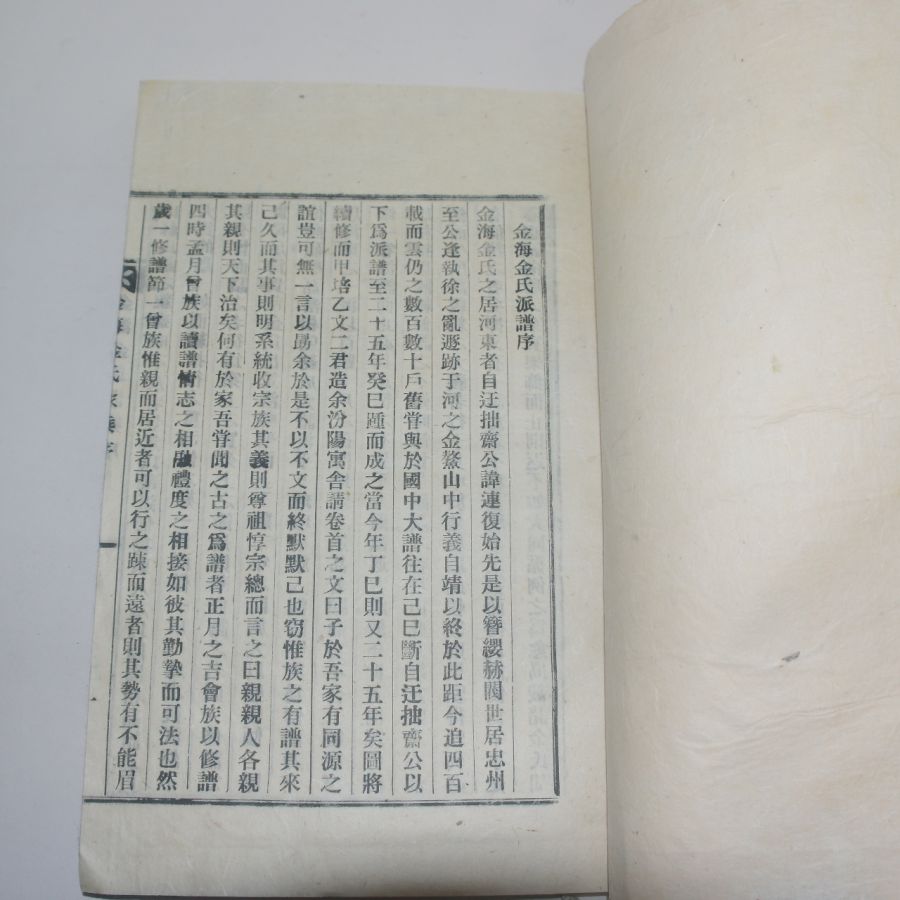 金海金氏派譜序
金海金氏之居河東者自迂拙齋公諱連復始先是以簪纓赫閥世居忠州
至公逢執徐之亂遯跡于河之金鰲山中行義自靖以終於此距今追四百
載而雲仍之數百數十戶舊甞與於國中大譜往在己巳斷自迂拙齋公以
下爲派譜至二十五年癸巳踵而成之當今年丁巳則又二十五年矣圖將
續修而甲培乙文二君造余汾陽寓舍請卷首之文曰子於吾家有同源之
誼豈可無一言以勗余於是不以不文而終默默己也窃惟族之有譜其來
己久而其事則明系統收宗族其義則尊祖惇宗總而言之曰親親人各親
其親則天下治矣何有於家吾甞聞之古之爲譜者正月之吉會族以修譜
四時孟月曾族以讀譜情志之相融禮度之相接如彼其勤摯而可法也然
歲一修譜節一曾族惟親而居近者可以行之踈而遠者則其勢有不能眉
金海金氏
一